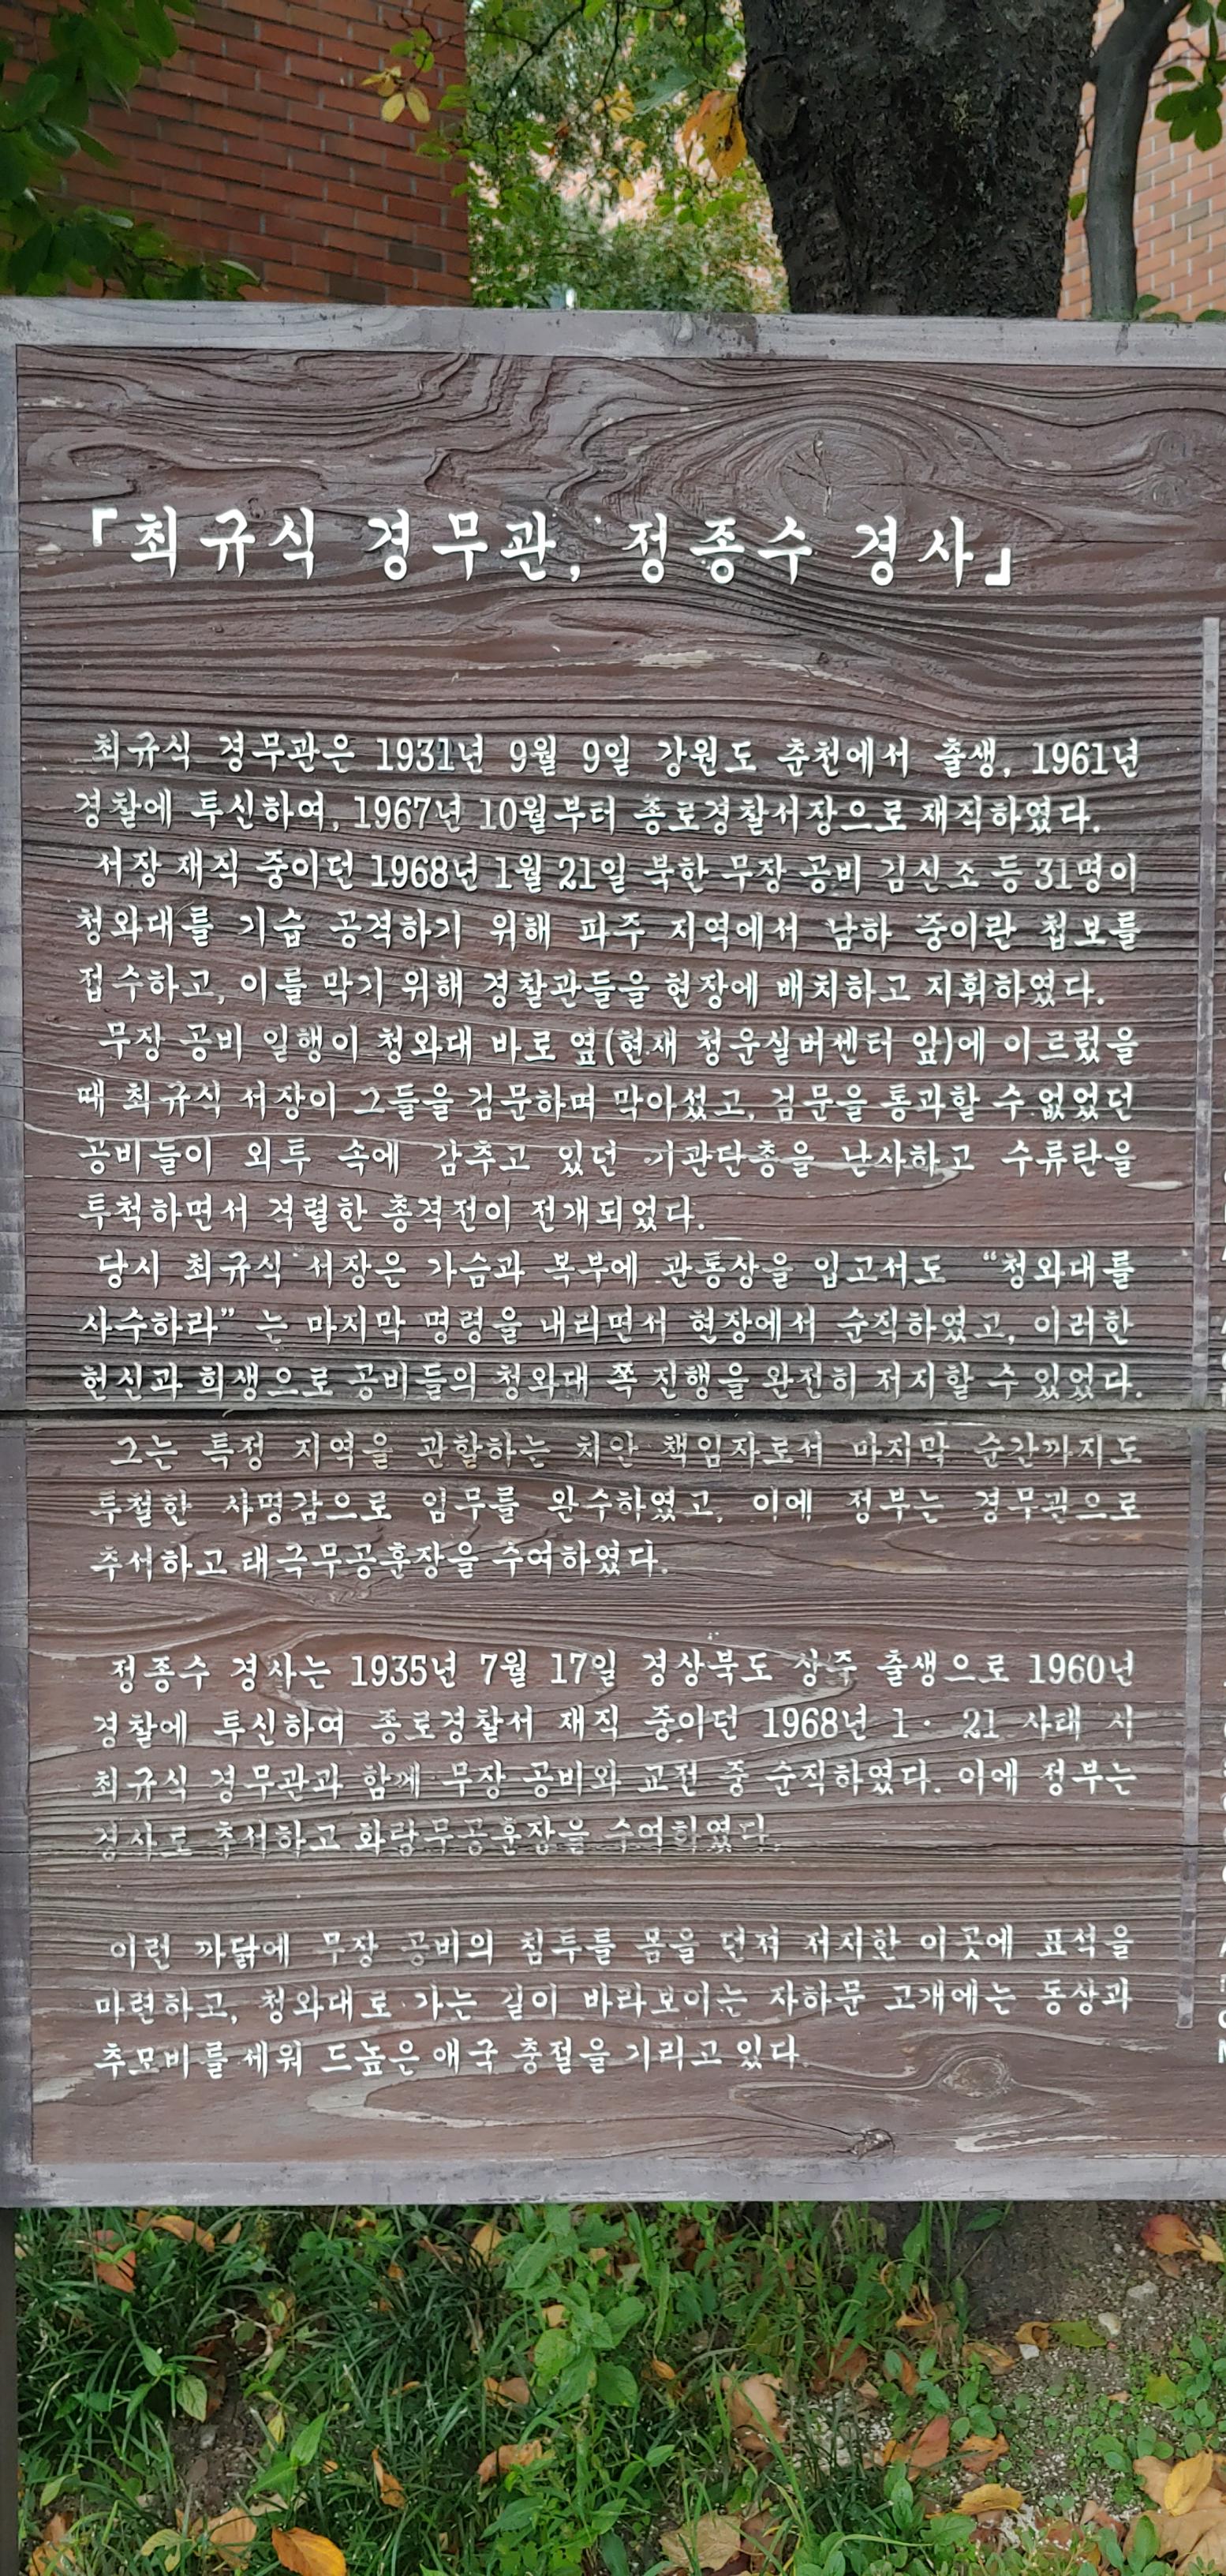 「최규식 경무관, 정종수 경사」
최규식 경무관은 1931년 9월 9일 강원도 춘천에서 출생, 1961년
경찰에 투신하여, 1967년 10월부터 종로경찰서장으로 재직하였다.
서장 재직 중이던 1968년 1월 21일 북한 무장 공비 김신조 등 31명이
청와대를 기습 공격하기 위해 파주 지역에서 남하 중이란 첩보를
접수하고, 이를 막기 위해 경찰관들을 현장에 배치하고 지휘하였다.
무장 공비 일행이 청와대 바로 옆(현재 청운실버센터 앞)에 이르렀을
때 최규식 서장이 그들을 검문하며 막아섰고, 검문을 통과할 수 없었던
공비들이 외투 속에 감추고 있던 기관단총을 난사하고 수류탄을
투척하면서 격렬한 총격전이 전개되었다.
당시 최규식 서장은 가슴과 복부에 관통상을 입고서도 “청와대를
사수하라” 는 마지막 명령을 내리면서 현장에서 순직하였고, 이러한
헌신과 희생으로 공비들의 청와대 쪽 진행을 완전히 저지할 수 있었다.
그는 특정 지역을 관할하는 치안 책임자로서 마지막 순간까지도
투철한 사명감으로 임무를 완수하였고, 이에 정부는 경무관으로
추서하고 태극무공훈장을 수여하였다.
정종수 경사는 1935년 7월 17일 경상북도 상주 출생으로 1960년
경찰에 투신하여 종로경찰서 재직 중이던 1968년 1· 21 사태 시
최규식 경무관과 함께 무장 공비와 교전 중 순직하였다. 이에 정부는
경사로 추서하고 화랑무공훈장을 수여하였다.
이런 까닭에 무장 공비의 침투를 몸을 던져 저지한 이곳에 표석을
마련하고, 청와대로 가는 길이 바라보이는 자하문 고개에는 동상과
추모비를 세워 드높은 애국 충절을 기리고 있다.